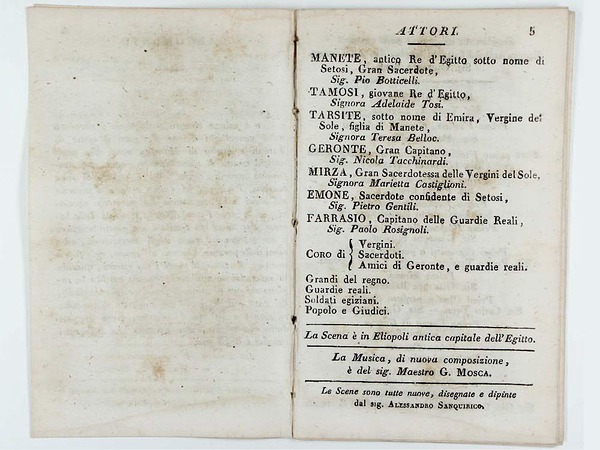 ATTORI. 5
MANETE, antico Re d'Egitto sotto nome di
Setosi, Gran Sacerdote,
Sig. Pio Botticelli.
TAMOSI, giovane Re d'Egitto,
Signora Adelaide Tosi.
TARSITE, sotto nome di Emira, Vergine del
Sole, figlia di Manete,
Signora Teresa Belloc.
GERONTE, Gran Capitano,
Sig. Nicola Tacchinardi.
MIRZA, Gran Sacerdotessa delle Vergini del Sole,
Signora Marietta Castiglioni.
EMONE, Sacerdote confidente di Setosi,
Sig. Pietro Gentili.
FARRASIO, Capitano delle Guardie Reali,
Sig. Paolo Rosignoli.
Vergini.
Coro di { Sacerdoti.
Amici di Geronte, e guardie reali.
Grandi del regno.
Guardie reali.
Soldati egiziani.
Popolo e Giudici.
La Scena è in Eliopoli antica capitale dell'Egitto.
La Musica, di nuova composizione,
è del sig. Maestro G. MOSCA.
Le Scene sono tutte nuove, disegnate e dipinte
dal sig. ALESSANDRO SANQUIRICO.